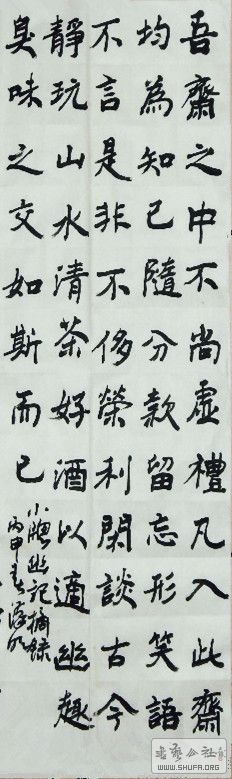 吾齋之中不尚虛禮凡入此齋
均為知己隨分款留忘形笑語
不言是非不侈榮利閑談古今
靜玩山水清茶好酒以適幽趣
臭味之交如斯而已
小牕幽記摘錄
丙申春
書藝公社
WWW.SHUFA.ORG